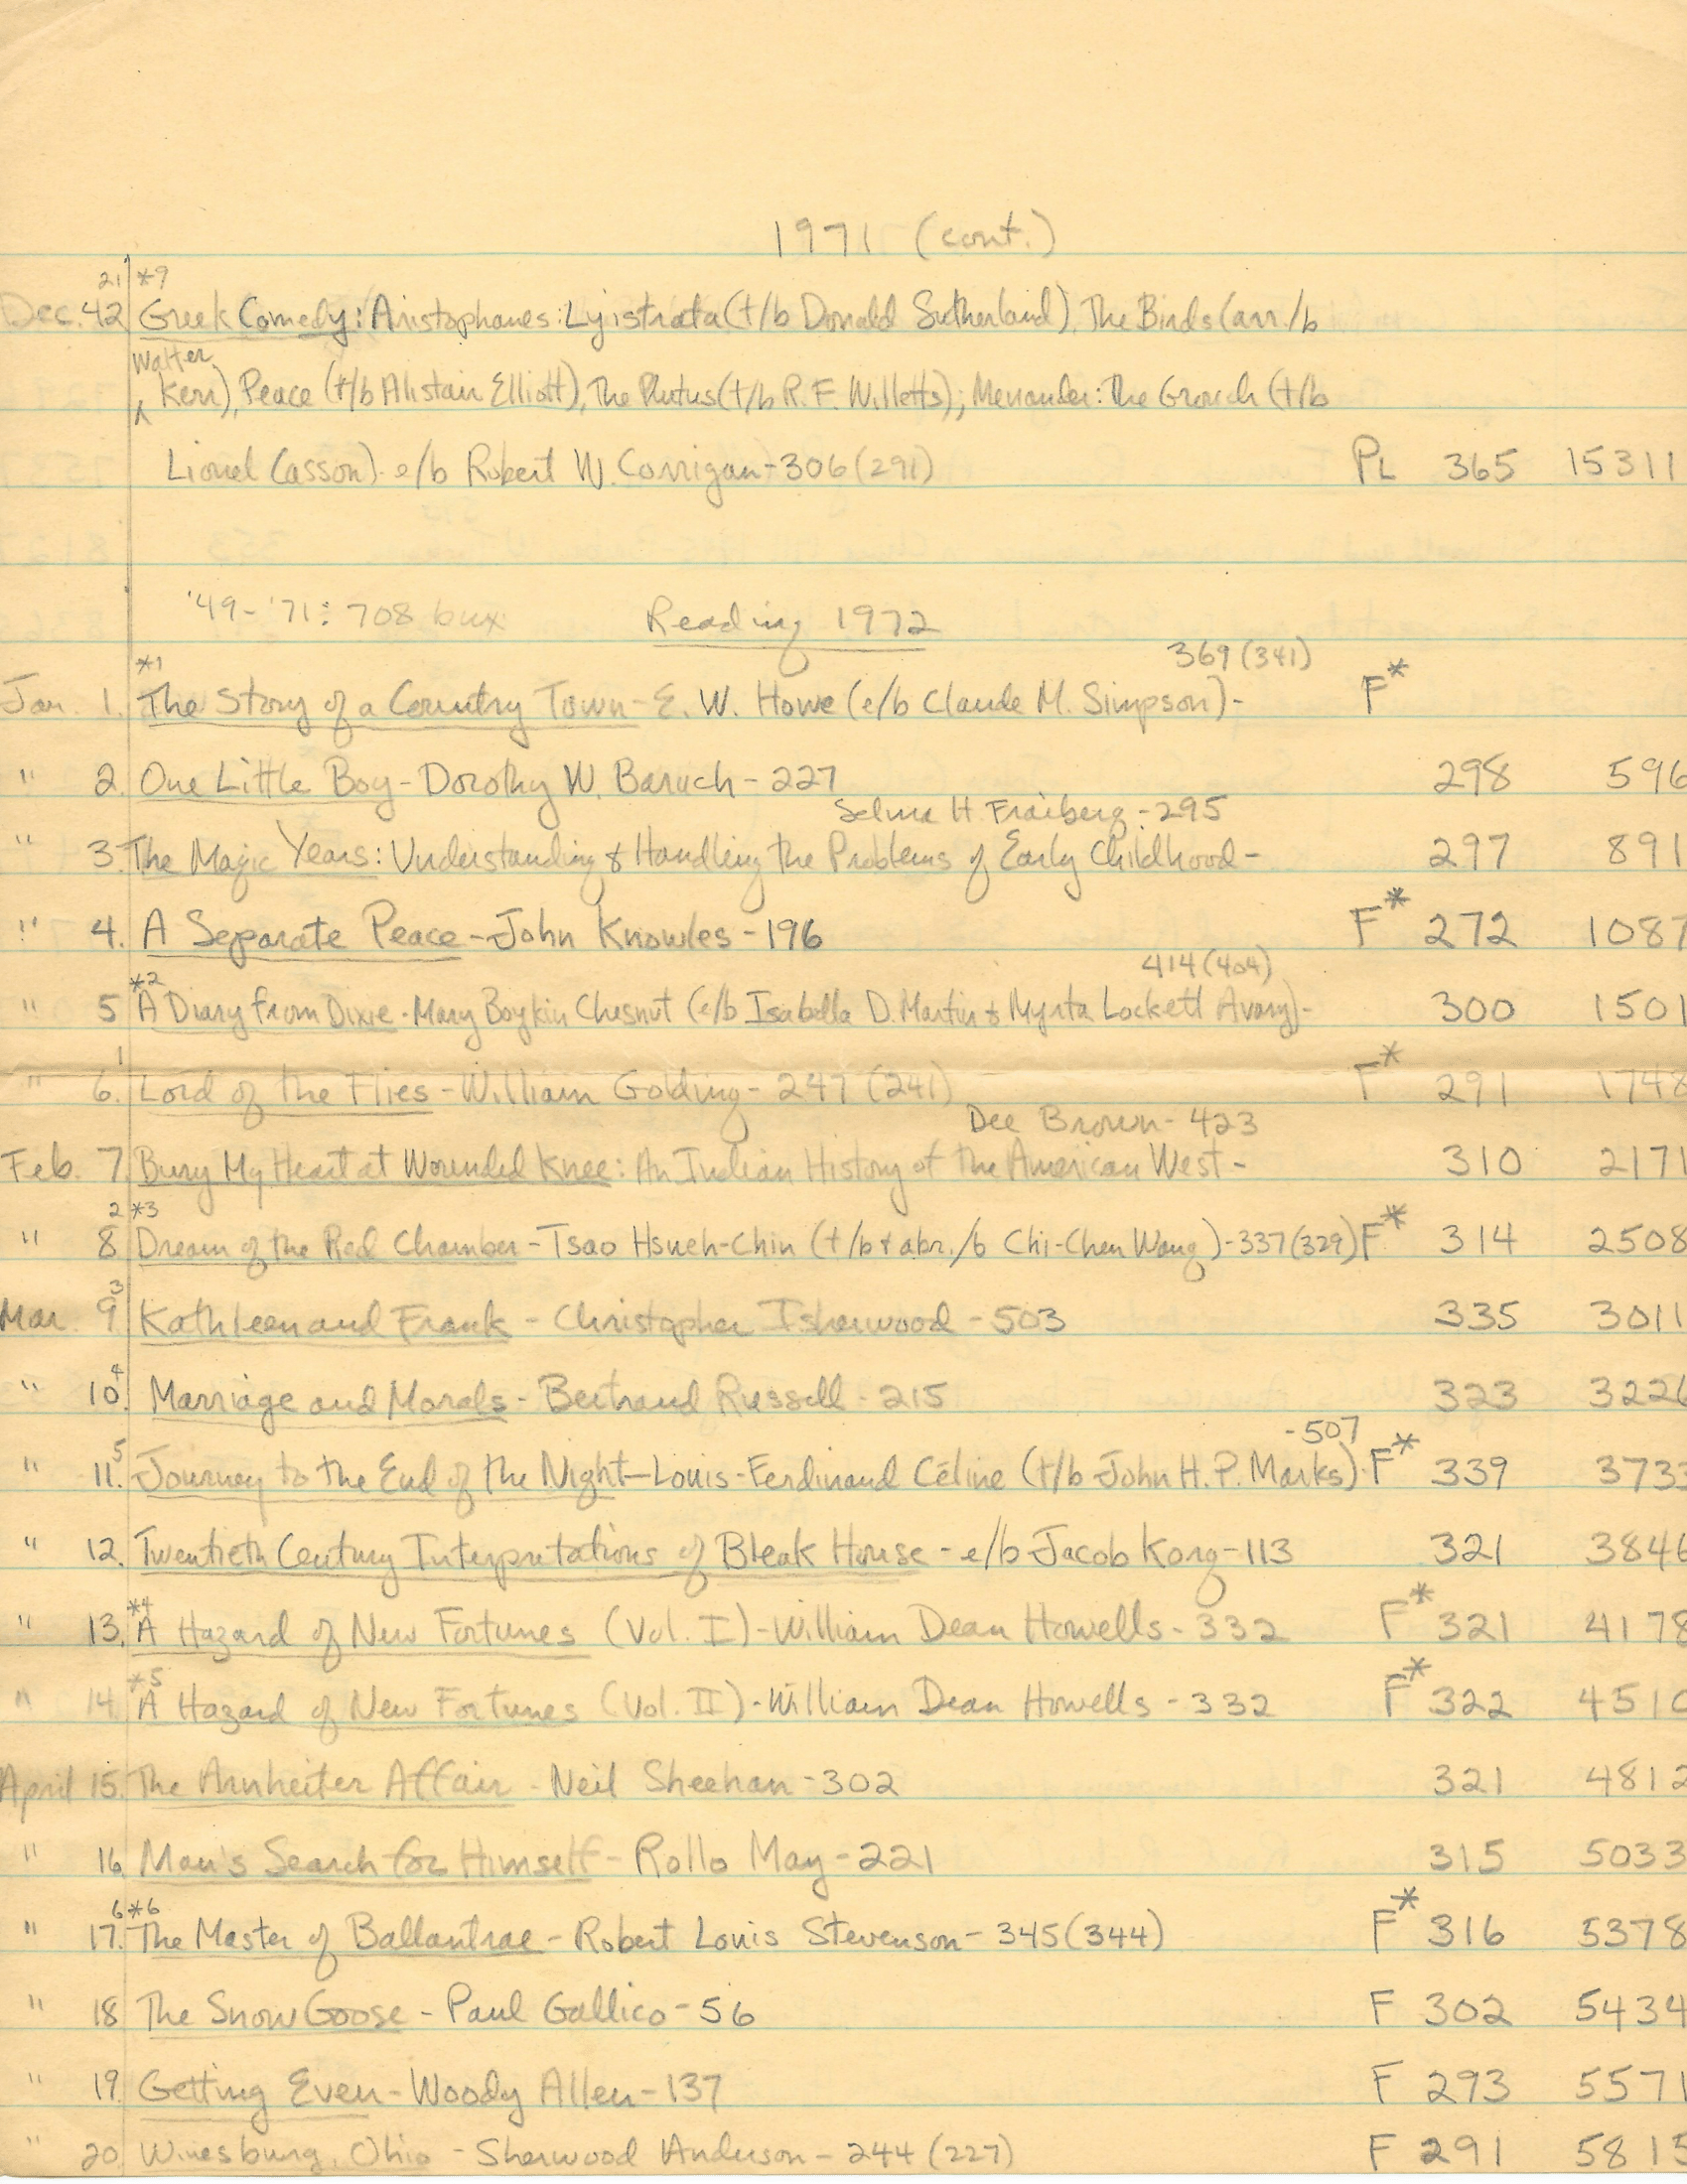 1971 (cont.)
21 *9
Dec. 42 Greek Comedy: Aristophanes: Lysistrata (t/b Donald Sutherland), The Birds (arr./b
Walter
^ Kerr), Peace (t/b Alistair Elliott), The Plutus (t/b R. F. Willetts); Menander: The Grouch (t/b
Lionel Casson). e/b Robert W. Corrigan - 306 (291) PL 365 15311
'49-'71: 708 bux Reading 1972
*1 369 (341)
Jan. 1. The Story of a Country Town - E. W. Howe (e/b Claude M. Simpson) - F*
" 2. One Little Boy - Dorothy W. Baruch - 227 298 596
Selma H. Fraiberg - 295
" 3. The Magic Years: Understanding & Handling the Problems of Early Childhood - 297 891
" 4. A Separate Peace - John Knowles - 196 F* 272 1087
*2 414 (404)
" 5 A Diary from Dixie - Mary Boykin Chesnut (e/b Isabella D. Martin & Myrta Lockett Avary) - 300 1501
1
" 6. Lord of the Flies - William Golding - 247 (241) F* 291 1748
Dee Brown - 423
Feb. 7. Bury My Heart at Wounded Knee: An Indian History of the American West - 310 2171
2 *3
" 8 Dream of the Red Chamber - Tsao Hsueh-Chin (t/b & abr./b Chi-Chen Wang) - 337 (329) F* 314 2508
3
Mar. 9 Kathleen and Frank - Christopher Isherwood - 503 335 3011
4
" 10. Marriage and Morals - Bertrand Russell - 215 323 3226
5 - 507
" 11. Journey to the End of the Night - Louis-Ferdinand Céline (t/b John H. P. Marks) F* 339 3733
" 12. Twentieth Century Interpretations of Bleak House - e/b Jacob Korg - 113 321 3846
*4
" 13. A Hazard of New Fortunes (Vol. I) - William Dean Howells - 332 F* 321 4178
*5
" 14. A Hazard of New Fortunes (Vol. II) - William Dean Howells - 332 F* 322 4510
April 15. The Arnheiter Affair - Neil Sheehan - 302 321 4812
" 16. Man's Search for Himself - Rollo May - 221 315 5033
6 *6
" 17. The Master of Ballantrae - Robert Louis Stevenson - 345 (344) F* 316 5378
" 18 The Snow Goose - Paul Gallico - 56 F 302 5434
" 19. Getting Even - Woody Allen - 137 F 293 5571
" 20 Winesburg, Ohio - Sherwood Anderson - 244 (227) F 291 5815